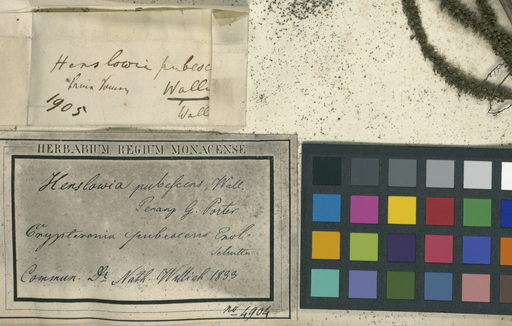 Henslowia pubesc
Wall
1905
Wall
HERBARIUM REGIUM MONACENSE
Henslowia pubescens, Wall.
Penang G. Porter
Crypteronia pubescens
Commun. Dr. Nath. Wallich 1833
no. 4904